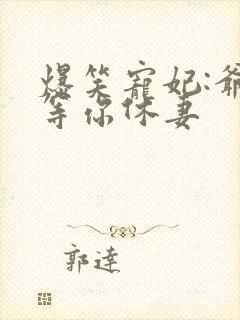 爆笑寵妃:爺
等你休妻
郭達